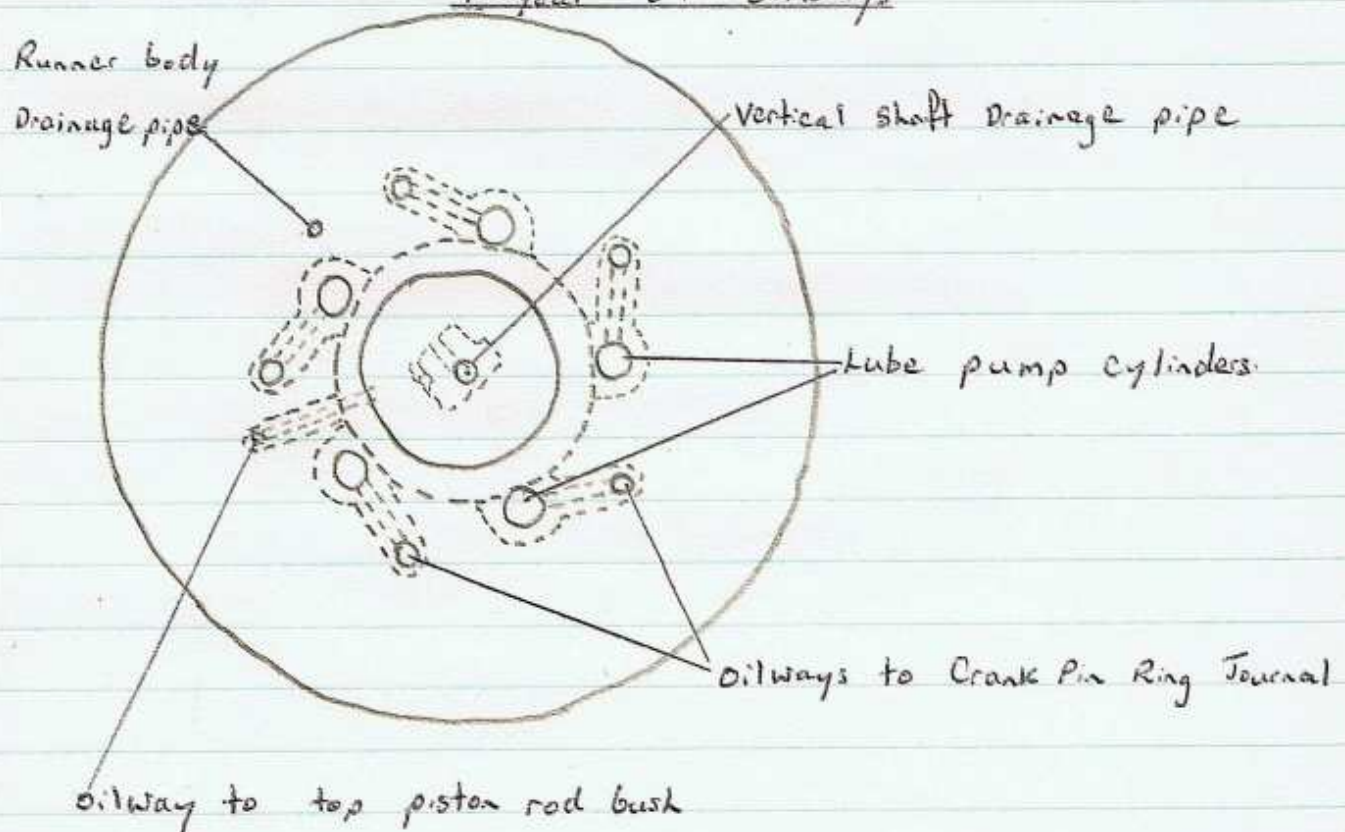 Runner body
Drainage pipe
Vertical shaft Drainage pipe
Lube pump cylinders
oilways to Crank Pin Ring Journal
oilway to top piston rod bush